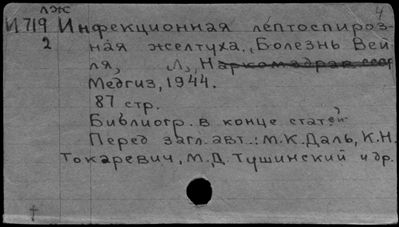 лж 4
И719 Инфекционная лептоспироз-
2 ная желтуха., Болезнь Вей
ля, Л, Наркомздрав ссср
Медгиз, 1944.
87 стр.
Библиогр. в конце статей
Перед загл. авт.: М.К.Даль, К.Н.
Токаревич, М.Д. Тушинский и др.